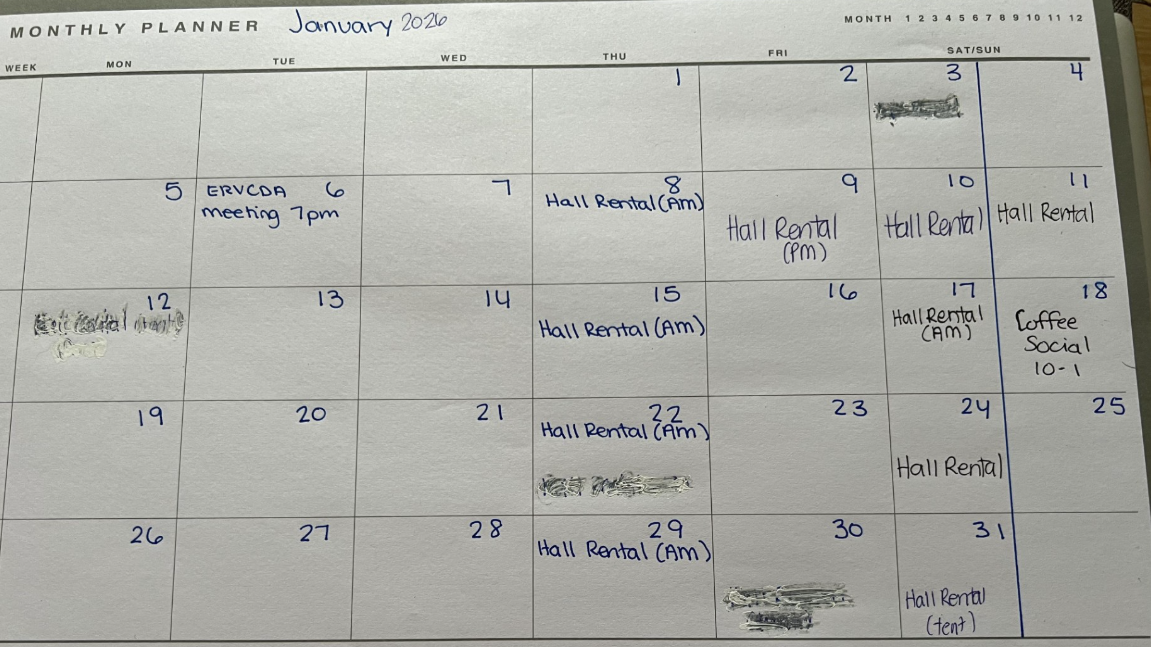 MONTHLY PLANNER January 2026
MONTH 1 2 3 4 5 6 7 8 9 10 11 12
WEEK MON TUE WED THU FRI SAT/SUN
1 2 3 4
5
ERVCDA 6
meeting 7pm
7
8
Hall Rental (Am)
9
Hall Rental
(PM)
10
Hall Rental
11
Hall Rental
12
13
14
15
Hall Rental (Am)
16
17
Hall Rental
(AM)
18
Coffee
Social
10-1
19
20
21
22
Hall Rental (Am)
23
24
Hall Rental
25
26
27
28
29
Hall Rental (Am)
30
31
Hall Rental
(tent)